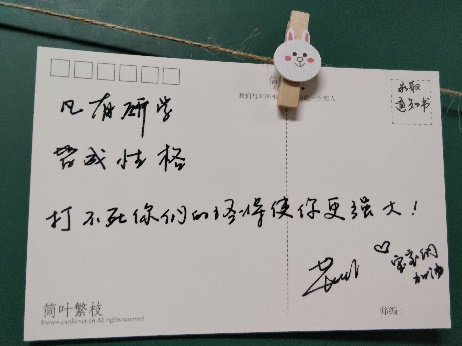 录取
通知书
凡有研学
皆成性格
打不死你们的终将使你更强大！
加油
简叶繁枝
All rights reserved
邮编：